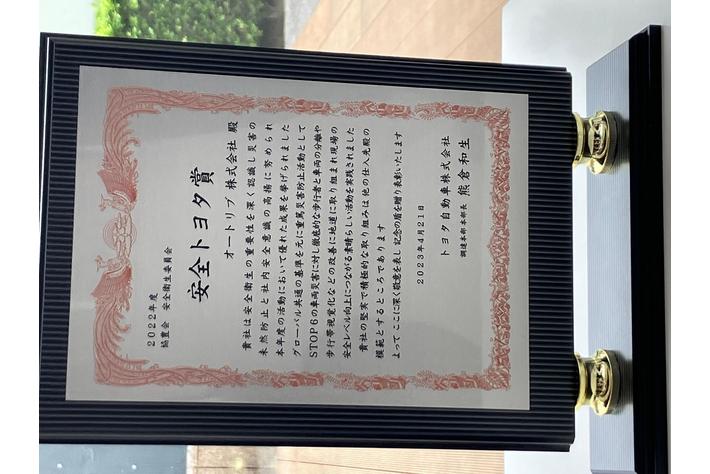 2022年度
協豊会 安全衛生委員会
安全トヨタ賞
オートリブ 株式会社 殿
貴社は安全衛生の重要性を深く認識し災害の
未然防止と社内安全意識の高揚に努められ
本年度の活動において優れた成果を挙げられました
グローバル共通の基準を元に重篤災害防止活動として
STOP6の車両災害に対し徹底的な歩行者と車両の分離や
歩行帯視覚化などの改善に地道に取り組まれ現場の
安全レベル向上につながる素晴らしい活動を実践されました
貴社の堅実で積極的な取り組みは他の仕入先殿の
模範とするところであります
よって ここに深く敬意を表し 記念の盾を贈り表彰いたします
2023年4月21日
トヨタ自動車株式会社
調達本部本部長 熊倉和生